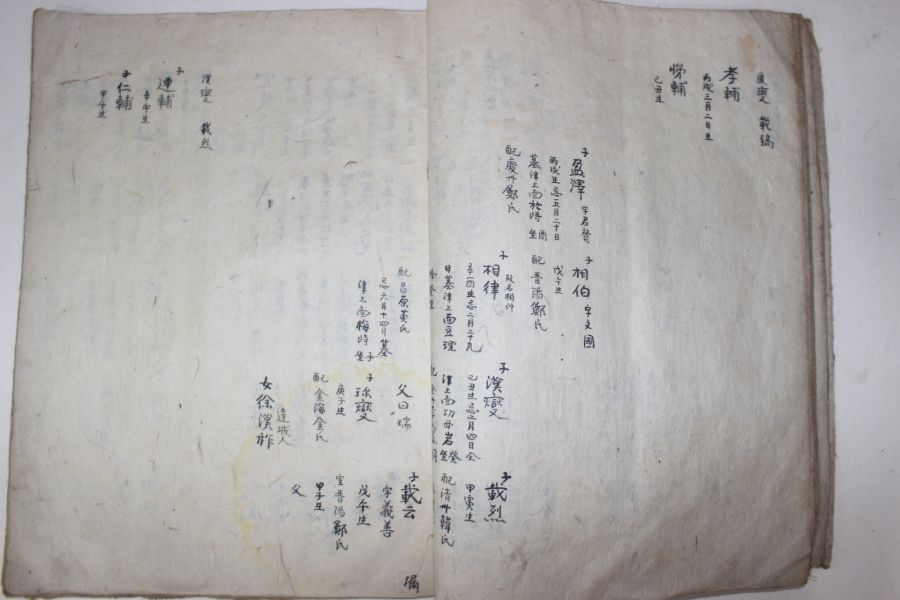 載鎬
孝輔
丙戌三月二日生
悌輔
己丑生
子
盈澤 字君
丙戌生忌五月二十日
墓津上面於時
配慶州鄭氏
子
相伯 字文國
戊午生
配晋陽鄭氏
子
相律 改名相
辛酉生忌二月二十九
日墓津上面豆理
配昌原黃氏
忌六月十四日墓
津上面梅時
子
漢燮
己丑生忌二月四日
津上面功母岩
父曰瑞
子
珎燮
庚子生
配金海金氏
女徐漢祚
達城人
子
載烈
甲寅生
配清州韓氏
子
載云
字義善
戊午生
室晋陽鄭氏
甲子生
父
漢燮 載烈
子
連輔
辛卯生
子
仁輔
甲午生